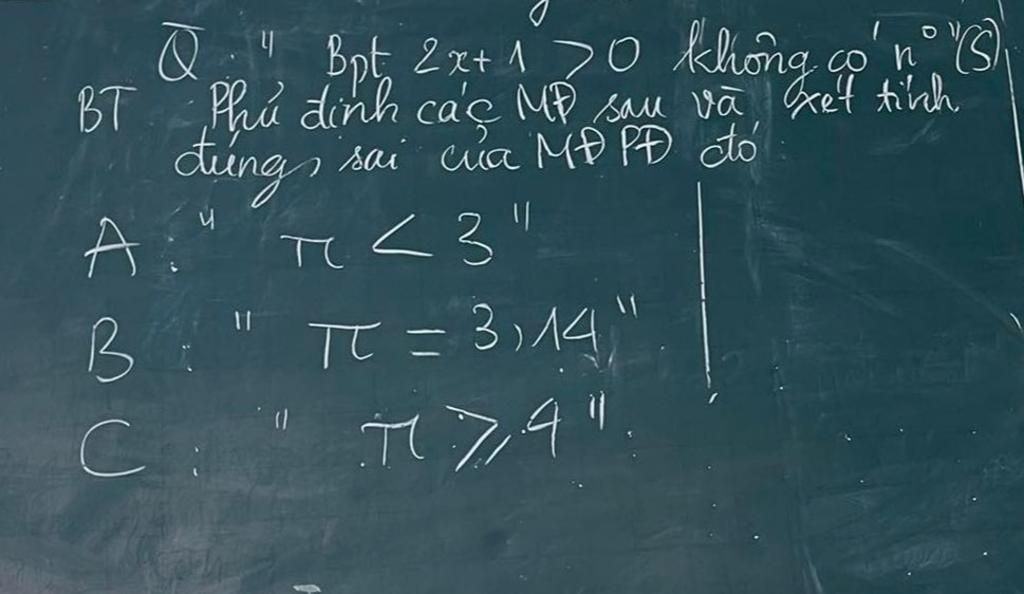 Q̅. " Bpt 2x+1 > 0 không có n⁰" (S)
BT Phủ định các MĐ sau và xét tính
đúng, sai của MĐ PĐ đó
A: " π < 3 "
B: " π = 3,14 "
C: " π ⩾ 4 "